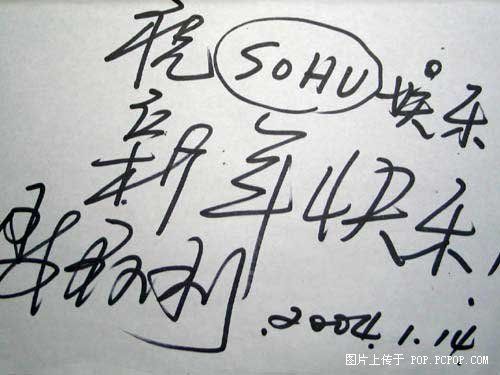 祝 SOHU 娱乐
新年快乐!
2004.1.14
图片上传于 POP.PCPOP.COM